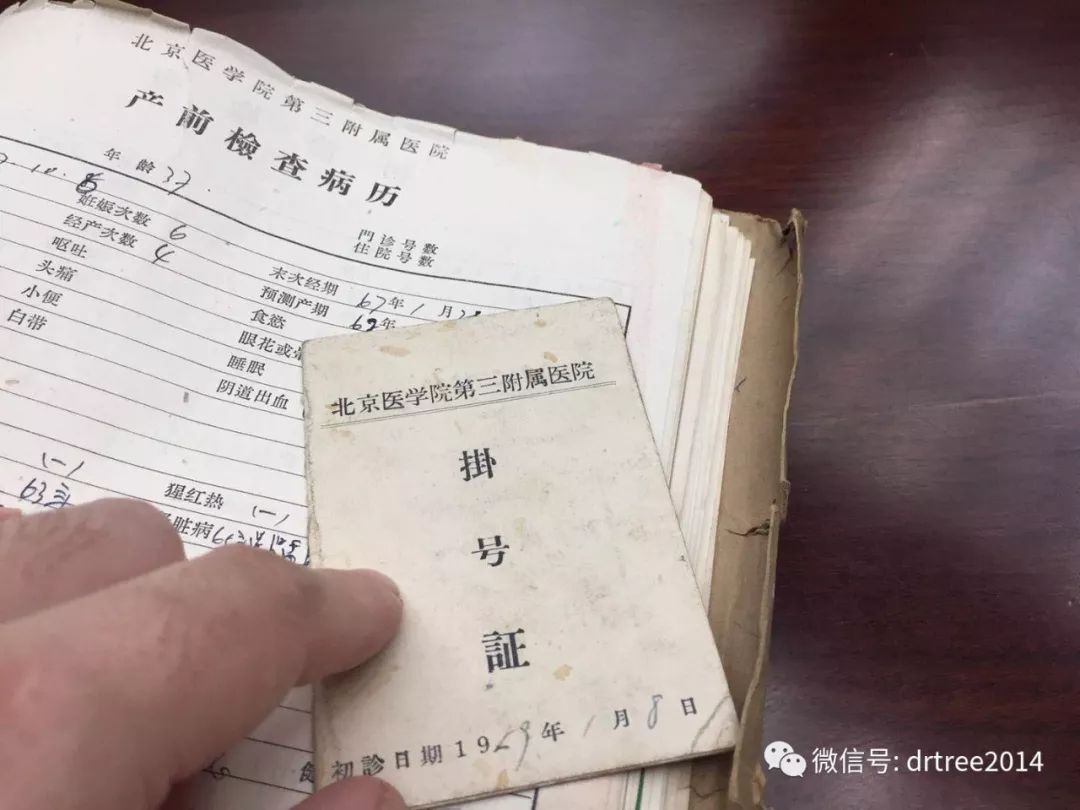 北京医学院第三附属医院
产前檢查病历
年龄 37
妊娠次数 6
門诊号数
经产次数 4
住院号数
呕吐
末次经期 67年1月
头痛
预测产期
小便
食慾
白带
眼花或
睡眠
阴道出血
(一)
猩红热 (一)
脏病
北京医学院第三附属医院
掛
号
証
初診日期19 9年1月8日
微信号: drtree2014